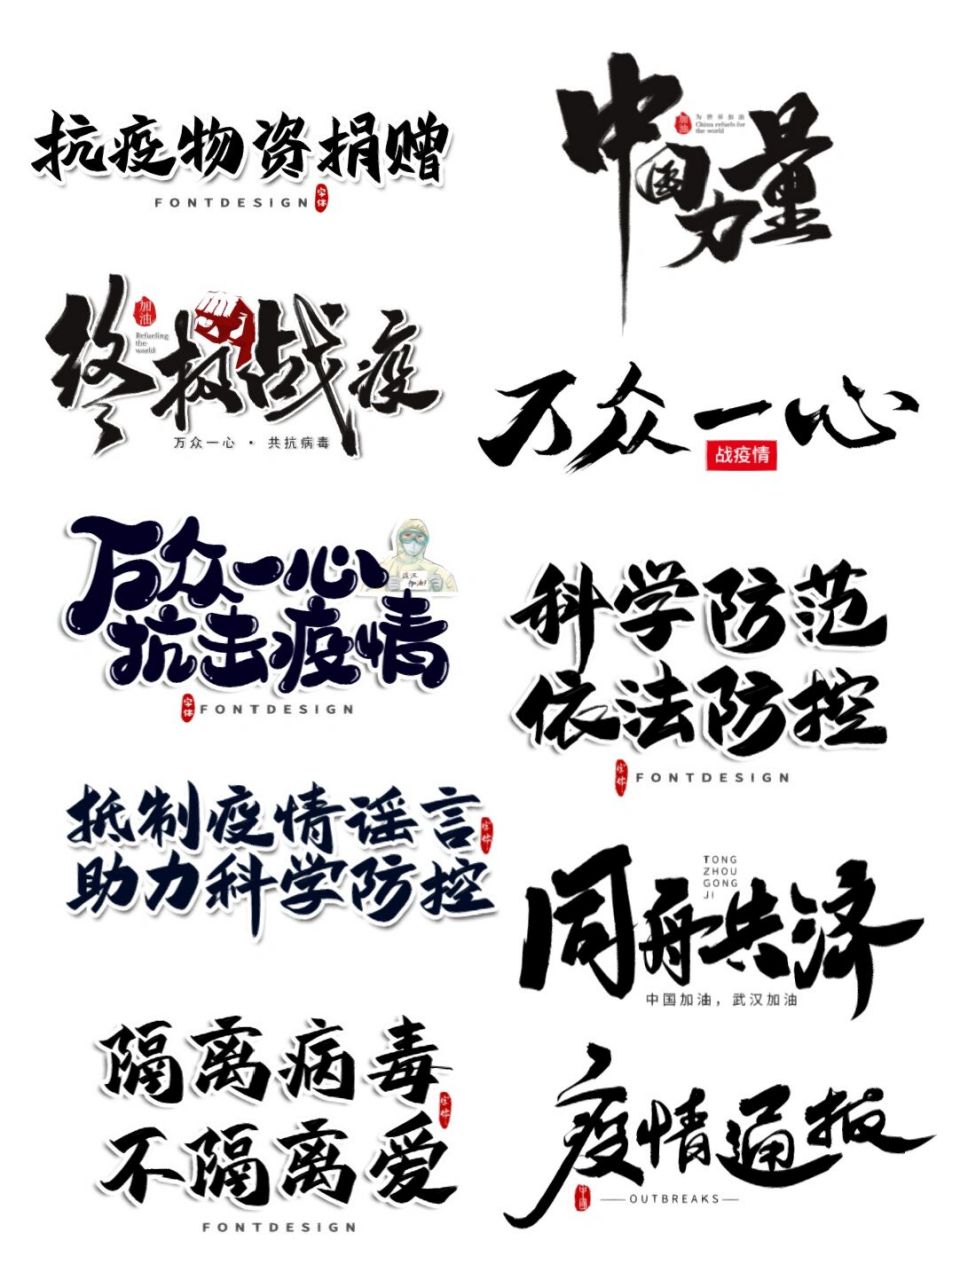 抗疫物资捐赠
FONTDESIGN
字体
中国力量
加油
为世界加油
China refuels for
the world
终极战疫
加油
Refueling
the
world
万众一心 · 共抗病毒
万众一心
战疫情
万众一心
抗击疫情
武汉
加油!
字体
FONTDESIGN
科学防范
依法防控
字体
FONTDESIGN
抵制疫情谣言
助力科学防控
字体
同舟共济
TONG
ZHOU
GONG
JI
中国加油，武汉加油
隔离病毒
不隔离爱
字体
FONTDESIGN
疫情通报
中国
OUTBREAKS